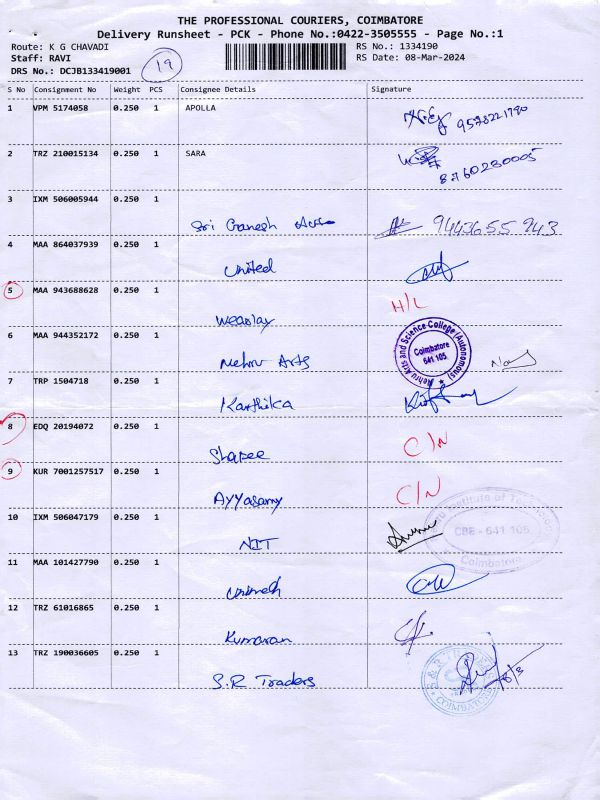 THE PROFESSIONAL COURIERS, COIMBATORE
Delivery Runsheet - PCK - Phone No.:0422-3505555 - Page No.:1
Route: K G CHAVADI
Staff: RAVI
DRS No.: DCJB133419001
19
RS No.: 1334190
RS Date: 08-Mar-2024
S No Consignment No Weight PCS Consignee Details Signature
1 VPM 5174058 0.250 1 APOLLA
9578221790
2 TRZ 210015134 0.250 1 SARA
8760230005
3 IXM 506005944 0.250 1
Sri Ganesh
9443655943
4 MAA 864037939 0.250 1
United
5 MAA 943688628 0.250 1
H/L
6 MAA 944352172 0.250 1
Nehru Arts
Nehru Arts and Science College (Autonomous)
Coimbatore
641 105.
7 TRP 1504718 0.250 1
Karthika
8 EDQ 20194072 0.250 1
Shapee
C/N
9 KUR 7001257517 0.250 1
Ayyasamy
C/N
10 IXM 506047179 0.250 1
NIT
Institute of Technology
CBE - 641 105
Coimbatore
11 MAA 101427790 0.250 1
12 TRZ 61016865 0.250 1
Kumaran
13 TRZ 190036605 0.250 1
S.R Traders
COIMBATORE
8/3